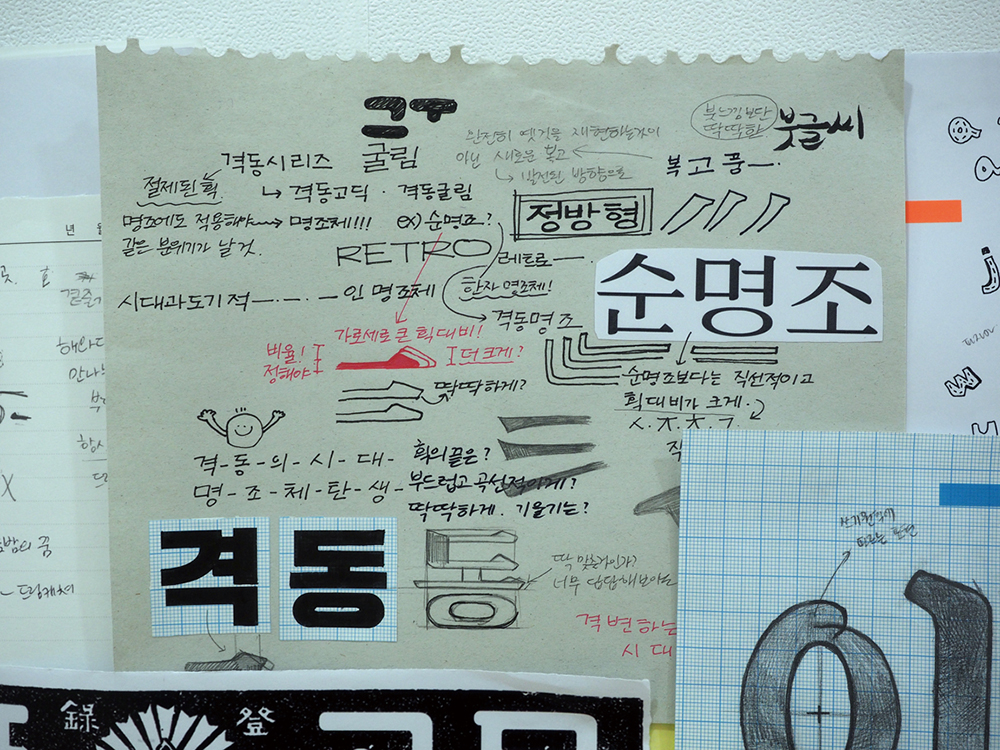 굴림
격동시리즈
절제된 획
격동고딕 · 격동굴림
명조에도 적용해야 명조체!!!
같은 분위기가 날 것.
ex) 순명조?
RETRO
레트로
시대과도기적
인 명조체
한자 명조체!
격동명조
완전히 옛것을 재현하는 것이
아닌 새로운 복고
발전된 방향으로
붓느낌보단
딱딱한
붓글씨
복고풍
정방형
순명조
가로세로 큰 획대비!
비율!
정해야
더 크게?
딱딱하게?
순명조보다는 직선적이고
획대비가 크게.
ㅅ.ㅈ.ㅊ.ㄱ.
직
격-동-의-시-대-
명-조-체-탄-생-
획의 끝은?
부드럽고 곡선적이게?
딱딱하게. 기울기는?
격동
동
딱 맞출것인가?
너무 답답해보이는
격변하는
시대
年 월
해라
만나
항시
드림캐쳐
錄 登
01